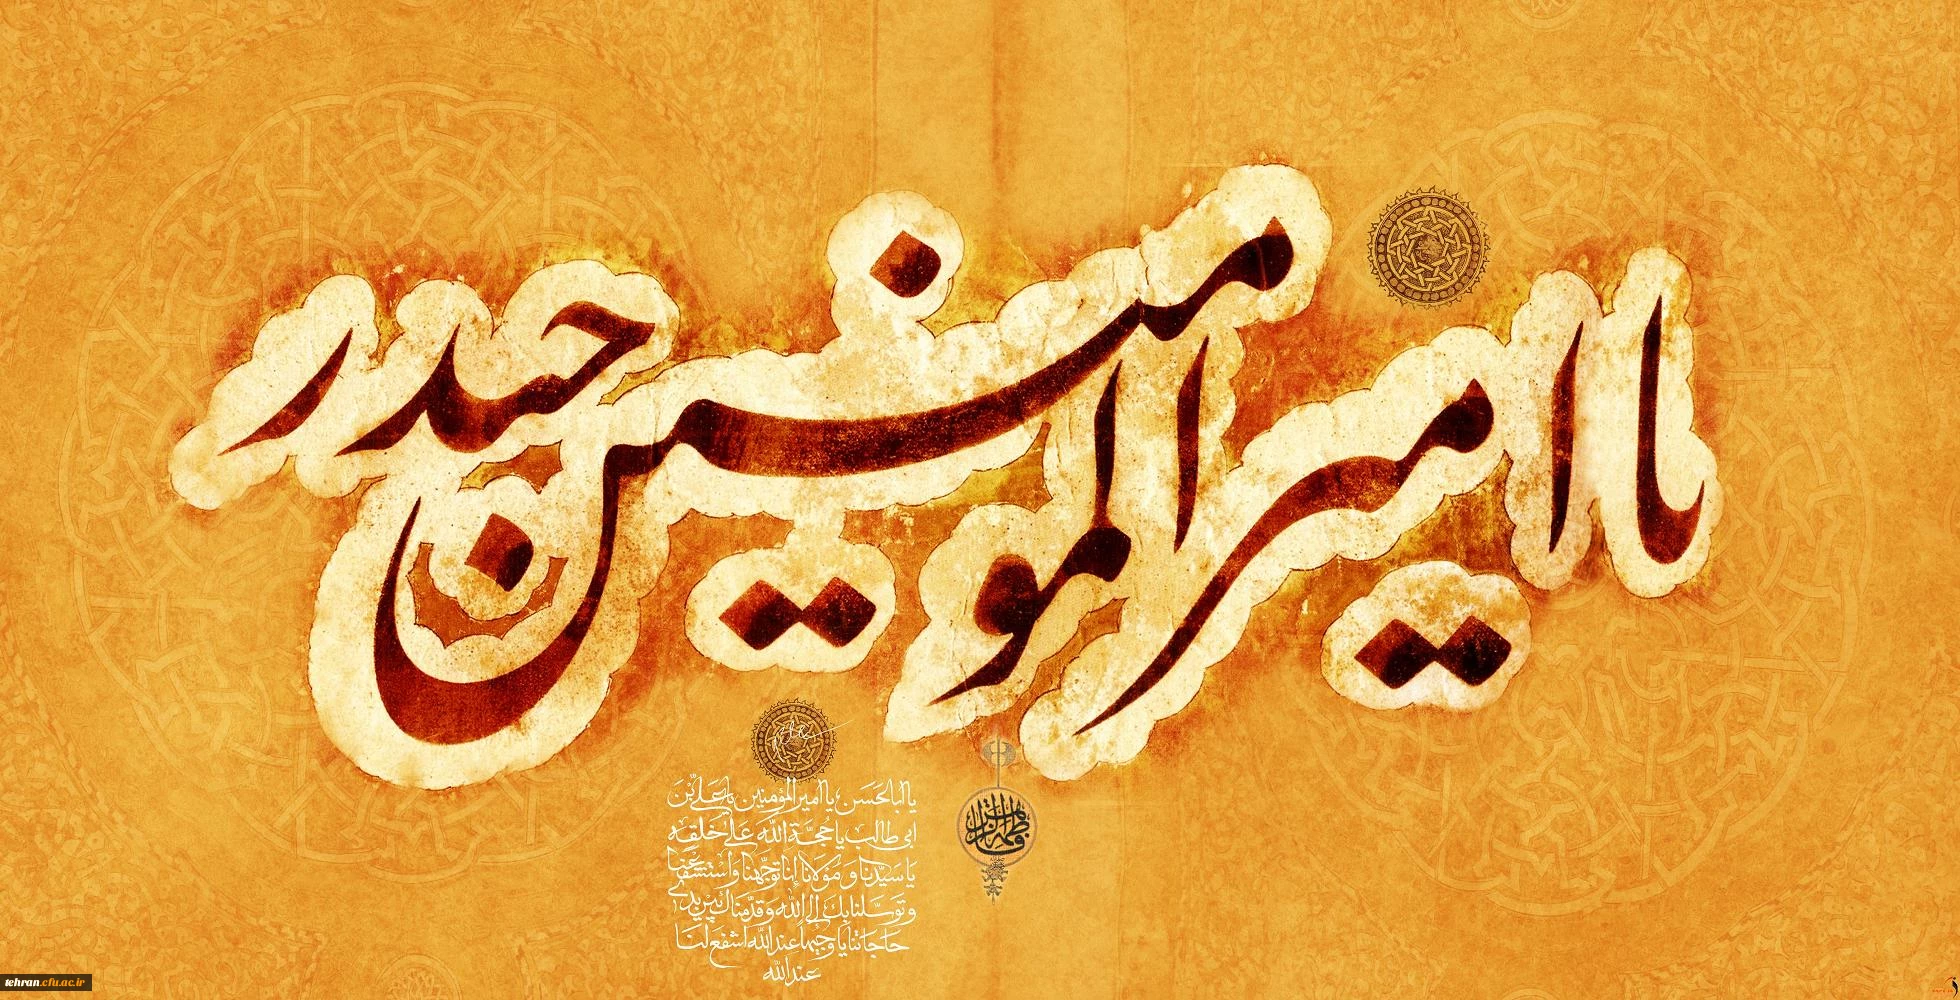 یا امیرالمومنین حیدر
یا اباالحَسَن یا امیرالمؤمنین یا عَلیَّ بْنَ
ابی طالب یا حُجَّةَ اللّه عَلی خَلقِه
یا سَیِّدَنا وَ مَوْلانا اِنا تَوَجَّهنا وَاسْتَشْفَعْنا
وَ تَوَسَّلنا بِكَ اِلَی اللّه وَ قَدَّمناكَ بَیْنَ یَدَی
حاجاتِنا یا وَجیهاً عِندَاللّه اشْفَع لَنا
عِندَاللّه
فاطمة الزهراء
tehran.cfu.ac.ir